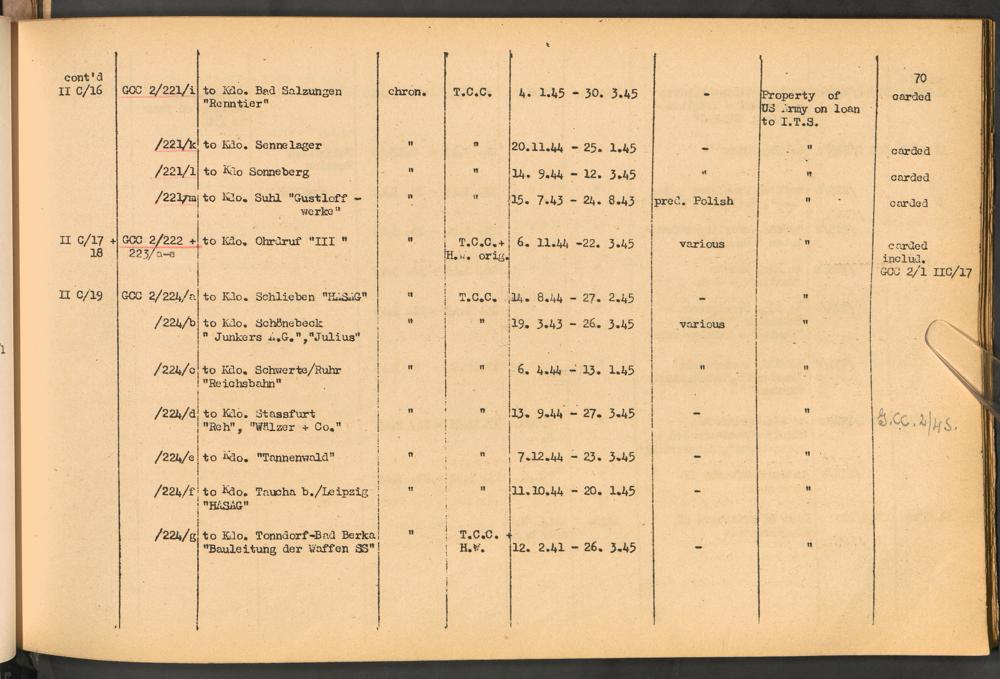 70
cont'd
II C/16 GCC 2/221/i to Kdo. Bad Salzungen chron. T.C.C. 4. 1.45 - 30. 3.45 - Property of carded
"Renntier" US Army on loan
to I.T.S.
/221/k to Kdo. Sennelager " " 20.11.44 - 25. 1.45 - " carded
/221/l to Kdo Sonneberg " " 14. 9.44 - 12. 3.45 " " carded
/221/m to Kdo. Suhl "Gustloff - " " 15. 7.43 - 24. 8.43 pred. Polish " carded
werke"
II C/17 + GCC 2/222 + to Kdo. Ohrdruf "III " " T.C.C.+ 6. 11.44 -22. 3.45 various " carded
18 223/a-e H.W. orig. includ.
GCC 2/1 IIC/17
II C/19 GCC 2/224/a to Kdo. Schlieben "HASAG" " T.C.C. 14. 8.44 - 27. 2.45 - "
/224/b to Kdo. Schönebeck " " 19. 3.43 - 26. 3.45 various "
" Junkers A.G.","Julius"
/224/c to Kdo. Schwerte/Ruhr " " 6. 4.44 - 13. 1.45 " "
"Reichsbahn"
/224/d to Kdo. Stassfurt " " 13. 9.44 - 27. 3.45 - " G.CC. 2/45.
"Reh", "Wälzer + Co."
/224/e to Kdo. "Tannenwald" " " 7.12.44 - 23. 3.45 - "
/224/f to Kdo. Taucha b./Leipzig " " 11.10.44 - 20. 1.45 - "
"HASAG"
/224/g to Kdo. Tonndorf-Bad Berka " T.C.C. +
"Bauleitung der Waffen SS" H.W. 12. 2.41 - 26. 3.45 - "